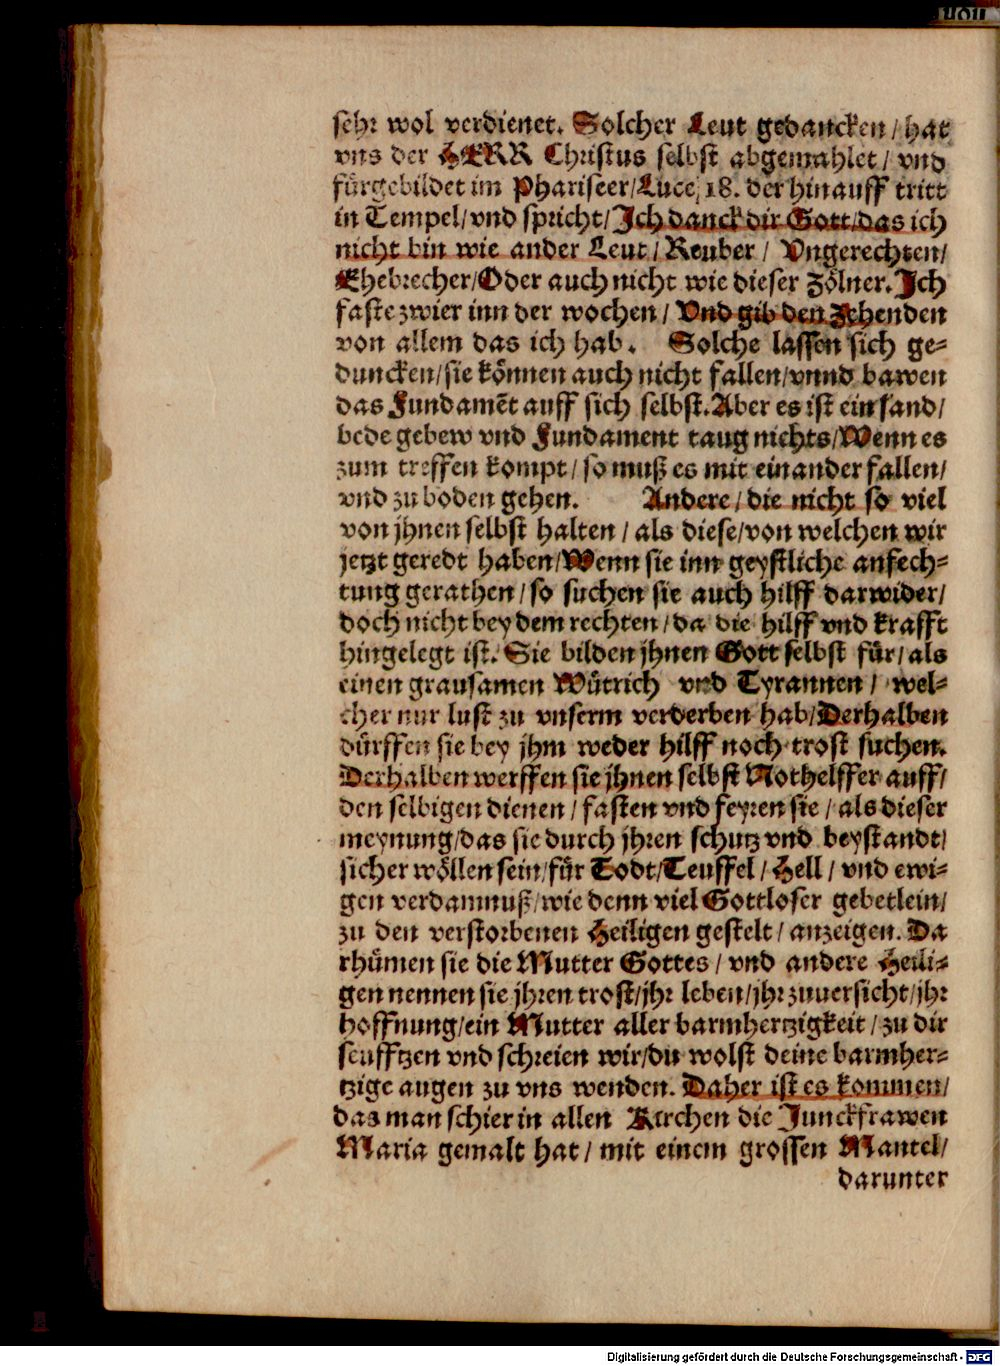 sehr wol verdienet. Solcher Leut gedancken / hat
vns der HERR Christus selbst abgemahlet / vnd
fürgebildet im Phariseer/Luce, 18. der hinauff tritt
in Tempel/vnd spricht/Ich danck dir Gott/das ich
nicht bin wie ander Leut / Reuber / Vngerechten/
Ehebrecher/Oder auch nicht wie dieser Zölner. Ich
faste zwier inn der wochen / Vnd gib den Zehenden
von allem das ich hab. Solche lassen sich ge-
duncken/sie können auch nicht fallen/vnnd bawen
das Fundamēt auff sich selbst. Aber es ist ein sand/
bede gebew vnd Fundament taug nichts/Wenn es
zum treffen kompt / so muß es mit einander fallen/
vnd zu boden gehen. Andere / die nicht so viel
von jhnen selbst halten / als diese/von welchen wir
jetzt geredt haben/Wenn sie inn geystliche anfech-
tung gerathen / so suchen sie auch hilff darwider/
doch nicht bey dem rechten / da die hilff vnd krafft
hingelegt ist. Sie bilden jhnen Gott selbst für / als
einen grausamen Wütrich vnd Tyrannen / wel-
cher nur lust zu vnserm verderben hab/Derhalben
dürffen sie bey jhm weder hilff noch trost suchen.
Derhalben werffen sie jhnen selbst Nothelffer auff/
den selbigen dienen / fasten vnd feyren sie / als dieser
meynung/das sie durch jhren schutz vnd beystandt/
sicher wöllen sein/für Todt/Teuffel / Hell / vnd ewi-
gen verdamnuß/wie denn viel Gottloser gebetlein/
zu den verstorbenen Heiligen gestelt / anzeigen. Da
rhümen sie die Mutter Gottes / vnd andere Heili-
gen nennen sie jhren trost/jhr leben/jhr zuuersicht/jhr
hoffnung/ein Mutter aller barmhertzigkeit / zu dir
seufftzen vnd schreien wir/du wolst deine barmher-
tzige augen zu vns wenden. Daher ist es kommen/
das man schier in allen Kirchen die Junckfrawen
Maria gemalt hat / mit einem grossen Mantel/
darunter
Digitalisierung gefördert durch die Deutsche Forschungsgemeinschaft - DFG